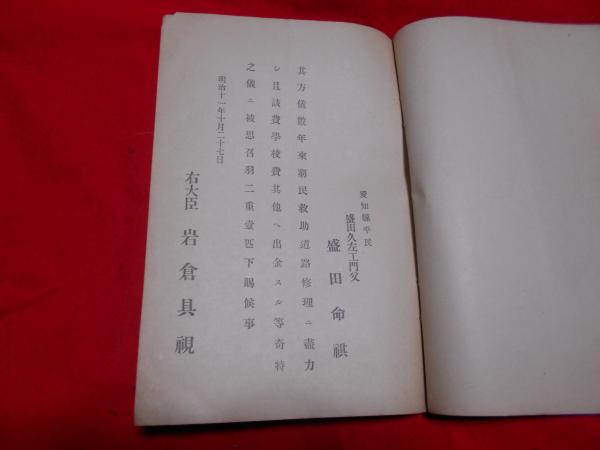 愛知縣平民
盛田久左エ門父
盛田命祺
其方儀數年來窮民救助道路修理ニ盡力
シ且該費學校費其他ヘ出金スル等奇特
之儀ニ被思召羽二重壹匹下賜候事
明治十一年十月二十七日
右大臣岩倉具視